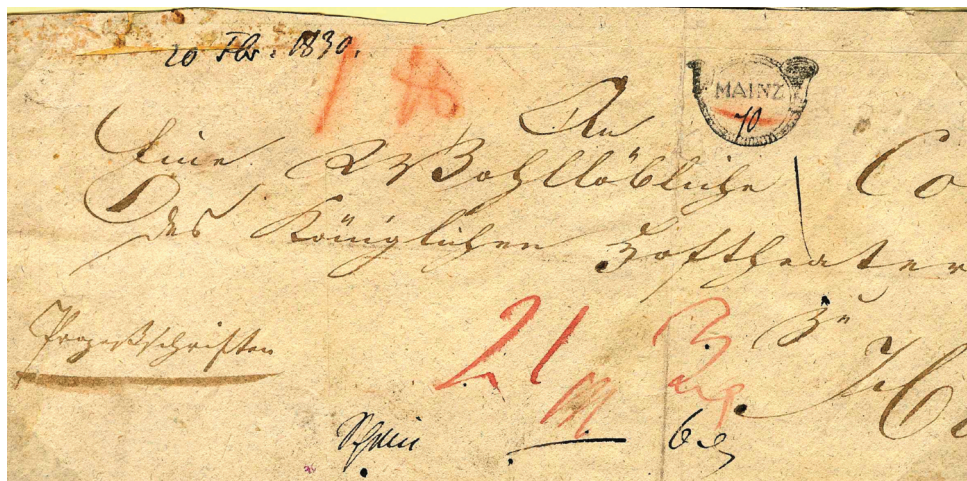 20 Fbr. 1830.
MAINZ
70
An
Eine Wohllöbliche Co
des Königlichen Hoftheater
21
zu
Prozeßschriften
Schein